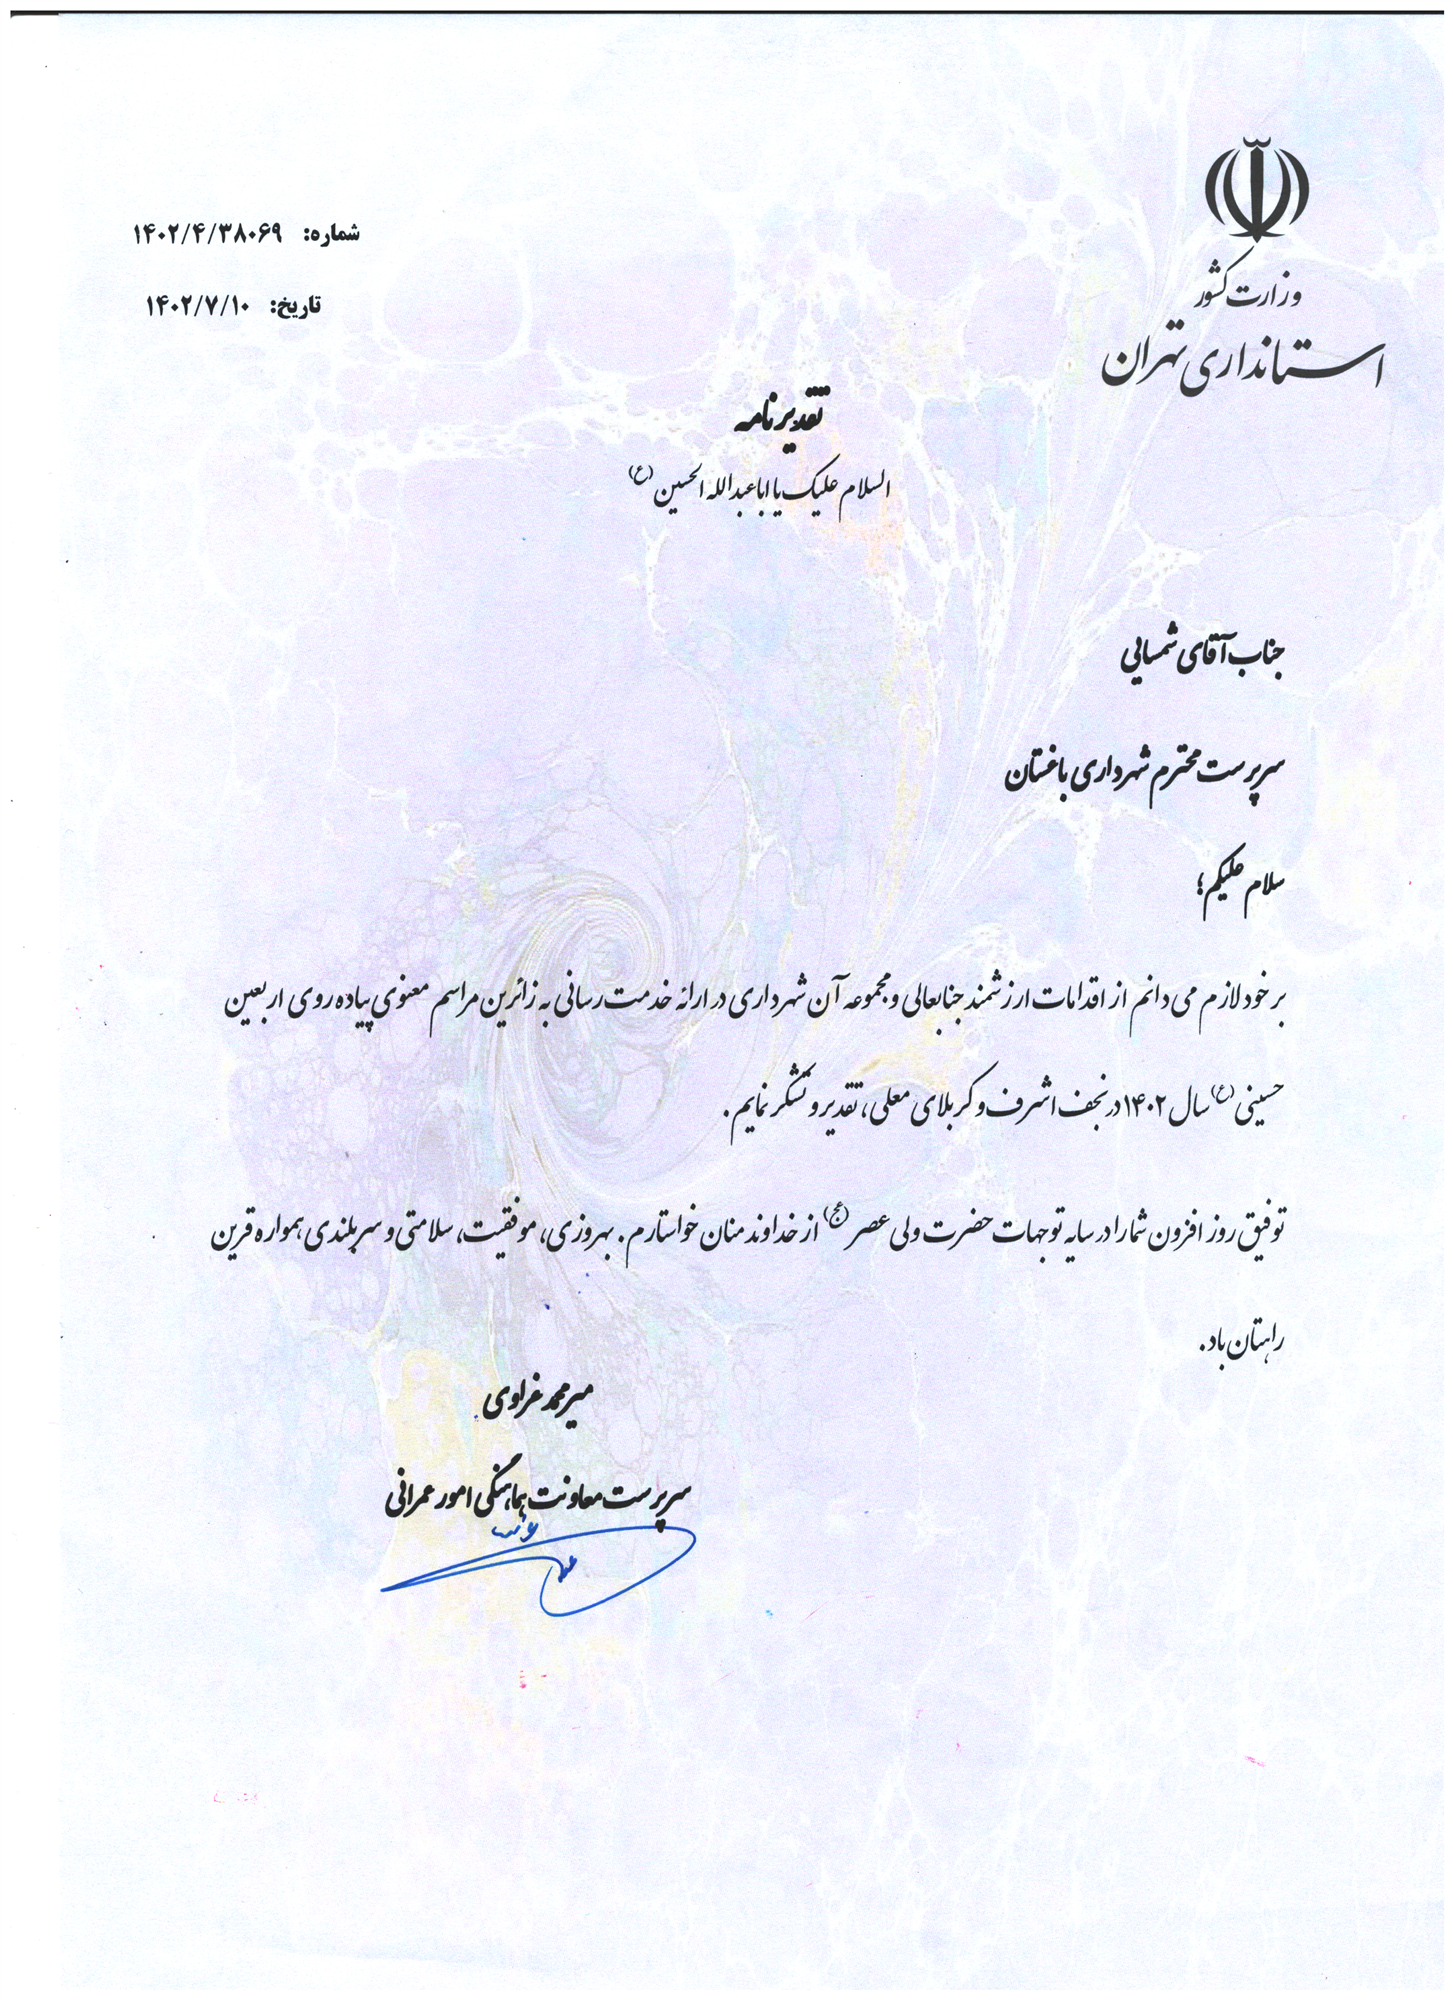 وزارت کشور
استانداری تهران
شماره: ۱۴۰۲/۴/۳۸۰۶۹
تاریخ: ۱۴۰۲/۷/۱۰
تقدیرنامه
السلام علیک یا اباعبدالله الحسین (ع)
جناب آقای شمسایی
سرپرست محترم شهرداری باغستان
سلام علیکم؛
بر خود لازم می دانم از اقدامات ارزشمند جنابعالی و مجموعه آن شهرداری در ارائه خدمت رسانی به زائرین مراسم معنوی پیاده روی اربعین
حسینی (ع) سال ۱۴۰۲ در نجف اشرف و کربلای معلی، تقدیر و تشکر نمایم.
توفیق روز افزون شما را در سایه توجهات حضرت ولی عصر (عج) از خداوند منان خواستارم. بهروزی، موفقیت، سلامتی و سربلندی همواره قرین
راهتان باد.
میرمحمد غراوی
سرپرست معاونت هماهنگی امور عمرانی